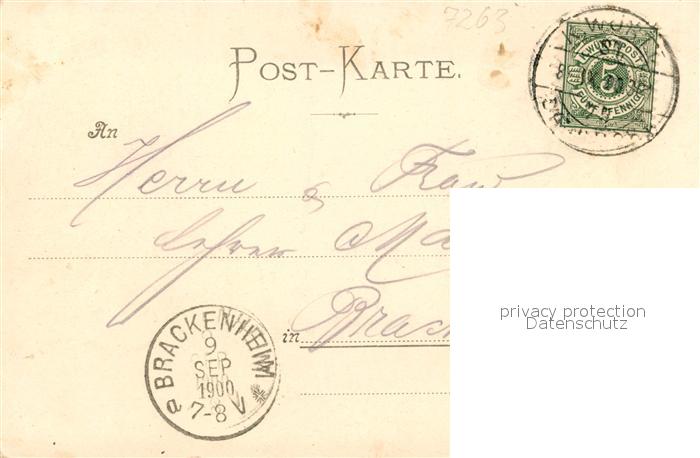 7263
K. WÜRTT. POST
5
FÜNF PFENNIG
POST-KARTE.
An
Herrn & Frau
Lehrer Ma
in Brack
BRACKENHEIM
9
SEP
1900
7-8 V
a
privacy protection
Datenschutz